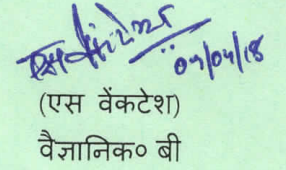 09/04/18
(एस वेंकटेश)
वैज्ञानिक० बी